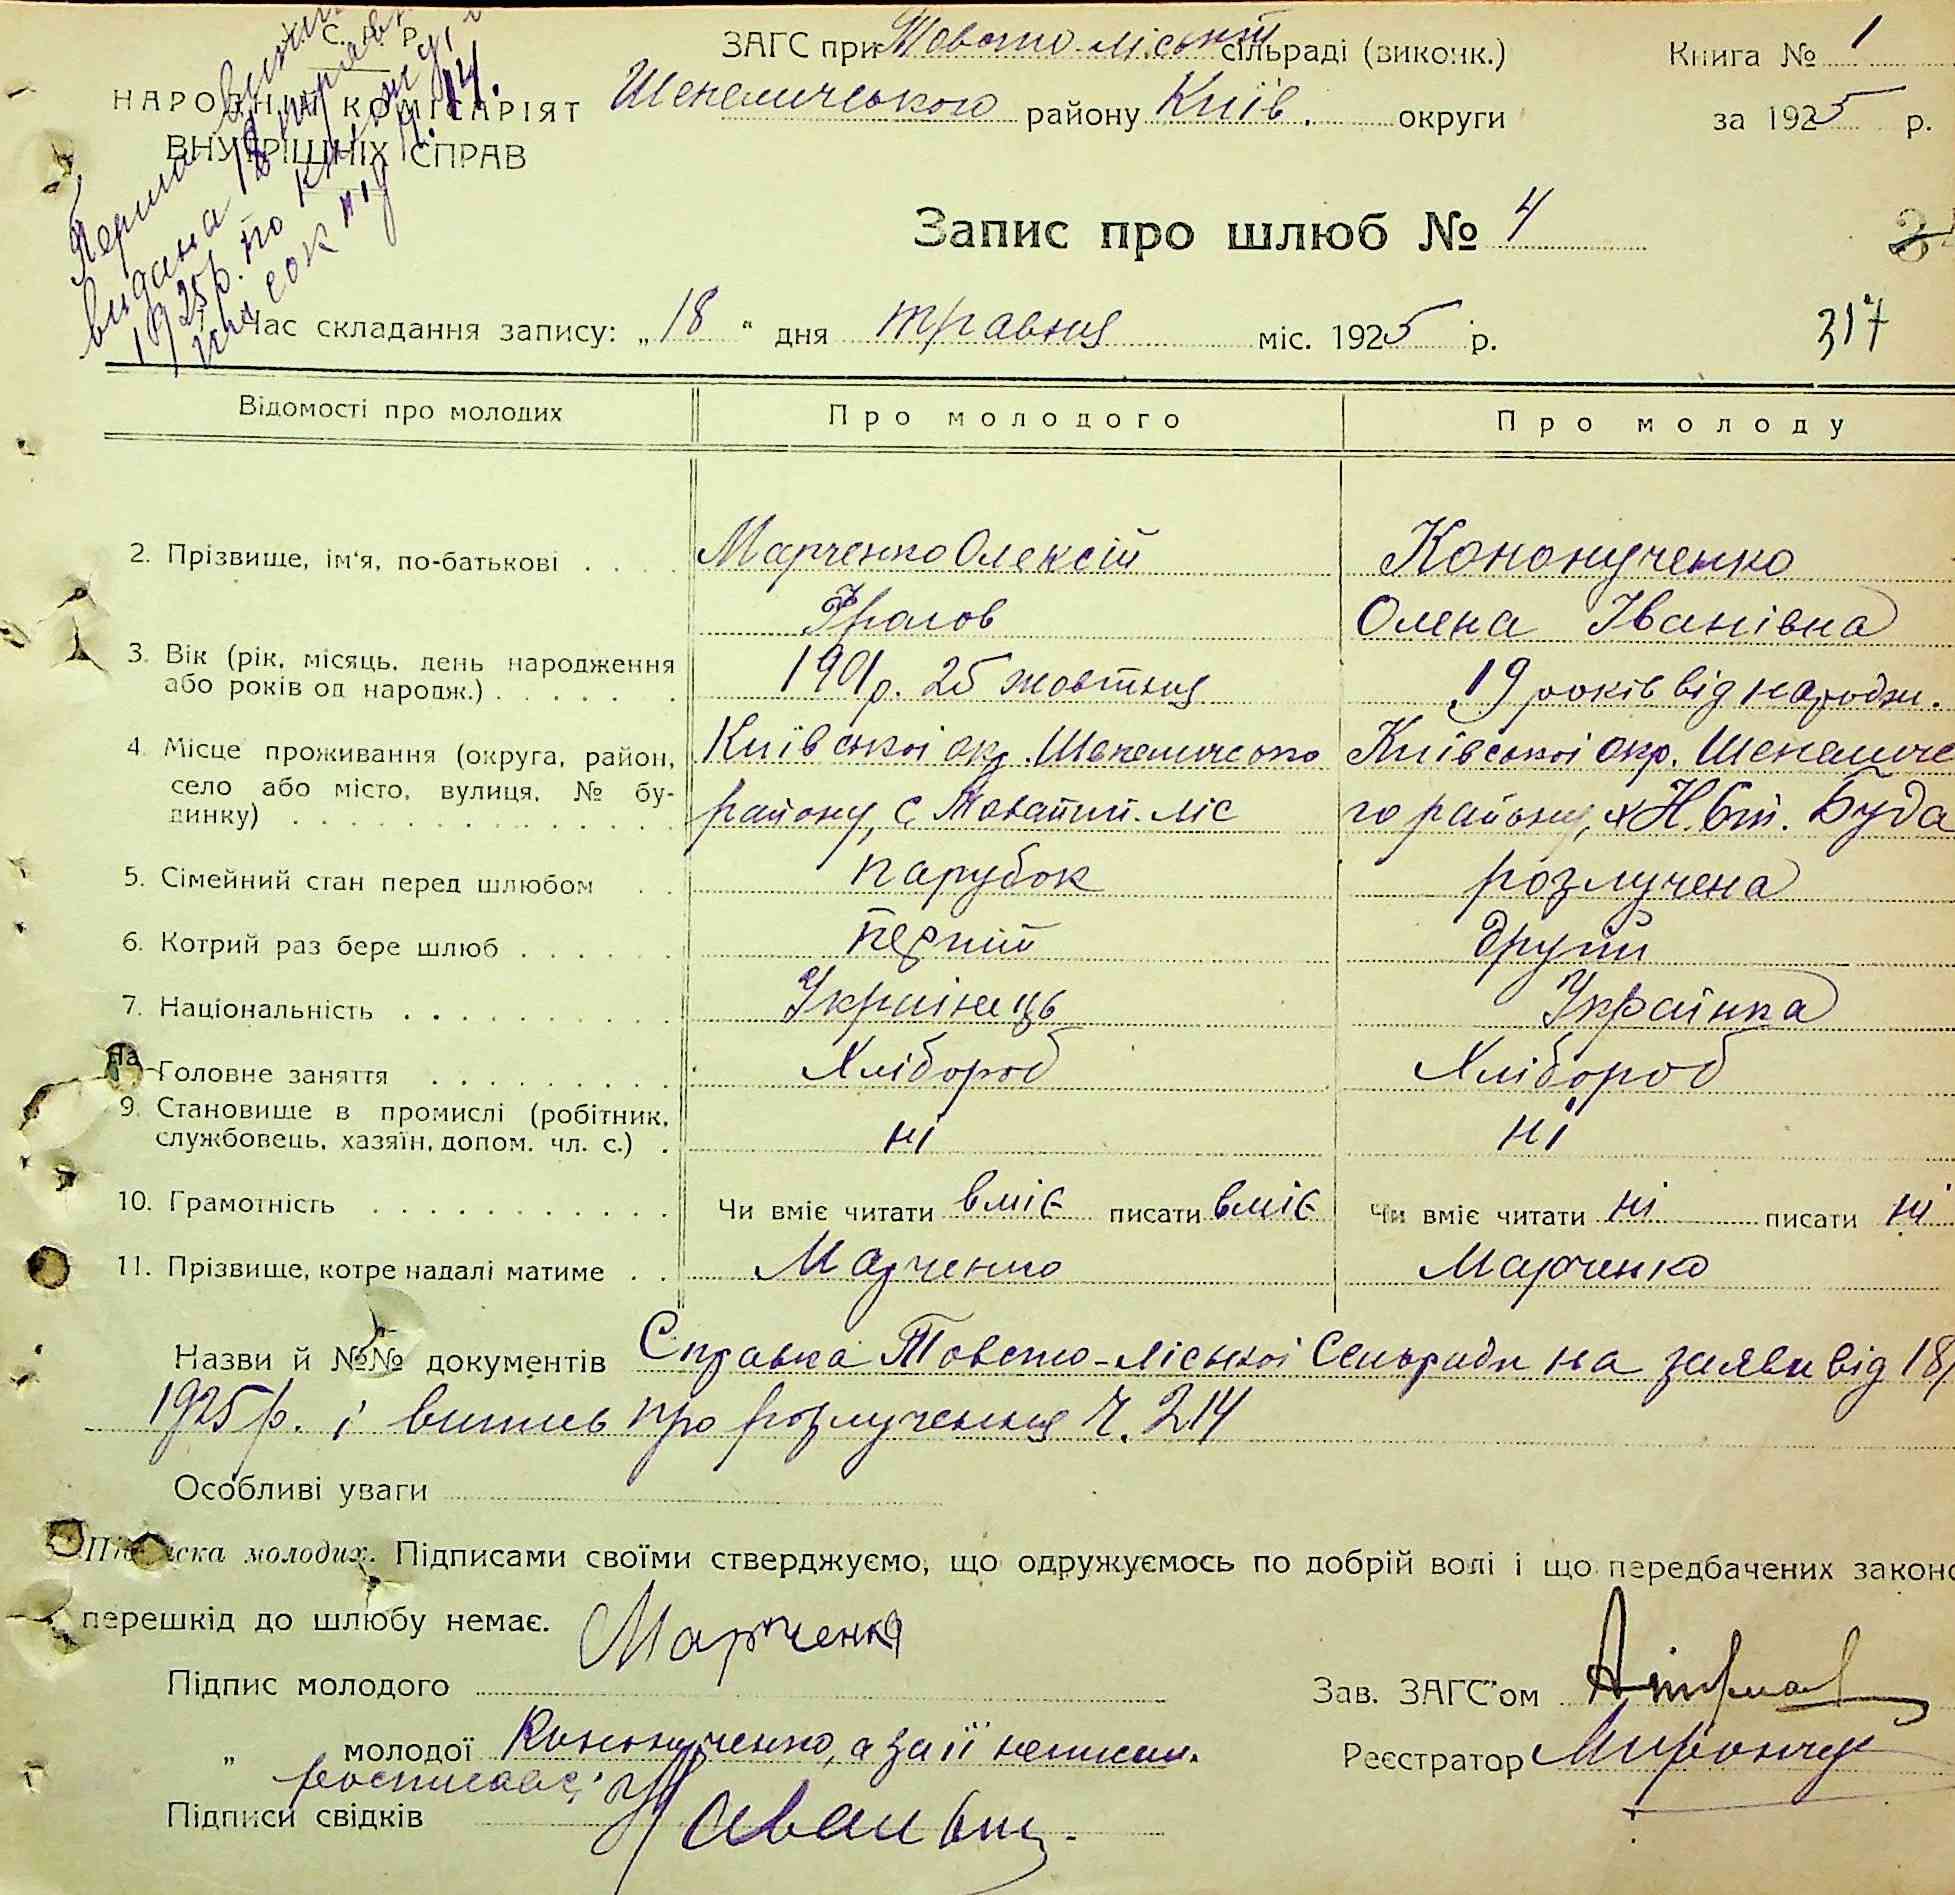 С. Р.
НАРОДНІЙ КОМІСАРІЯТ
ВНУТРІШНІХ СПРАВ
видана 18 травня
1925р. по книжці
ЗАГС при Товсто-Ліській сільраді (виконк.)
Шепелическького району Київ. округи
Книга № 1
за 1925 р.
Запис про шлюб № 4
Час складання запису: „18 “ дня травня міс. 1925 р.
317
Відомості про молодих Про молодого Про молоду
2. Прізвище, ім‘я, по-батькові . . . . Марченко Олексій Кононученко
Олена Іванівна
3. Вік (рік, місяць, день народження
або років од народж.) . . . . . . 1901р. 25 жовтня 19 років від народж.
4. Місце проживання (округа, район,
село або місто, вулиця, № бу-
динку) . . . . . . . . . . . . . .
Київської окр. Шепеличского Київської окр. Шепеличс
району, с. Товстий-Ліс го району, х Н. Буда
5. Сімейний стан перед шлюбом . . парубок розлучена
6. Котрий раз бере шлюб . . . . . . перший другий
7. Національність . . . . . . . . . . Українець Українка
На Головне заняття . . . . . . . . . Хлібороб Хлібороб
9. Становище в промислі (робітник,
службовець, хазяїн, допом. чл. с.) . ні ні
10. Грамотність . . . . . . . . . . . Чи вміє читати вміє писати вміє Чи вміє читати ні писати ні
11. Прізвище, котре надалі матиме . . Марченко Марченко
Назви й №№ документів Справка Товсто-Ліської Сельради на заяви від 18/
1925р. і випись про розлучення Ч. 214
Особливі уваги
Підписка молодих. Підписами своїми стверджуємо, що одружуємось по добрій волі і що передбачених законо
перешкід до шлюбу немає.
Підпис молодого Марченко
Зав. ЗАГС'ом
„ молодої Кононученко, а за її неписьм.
росписавсь
Реєстратор
Підписи свідків